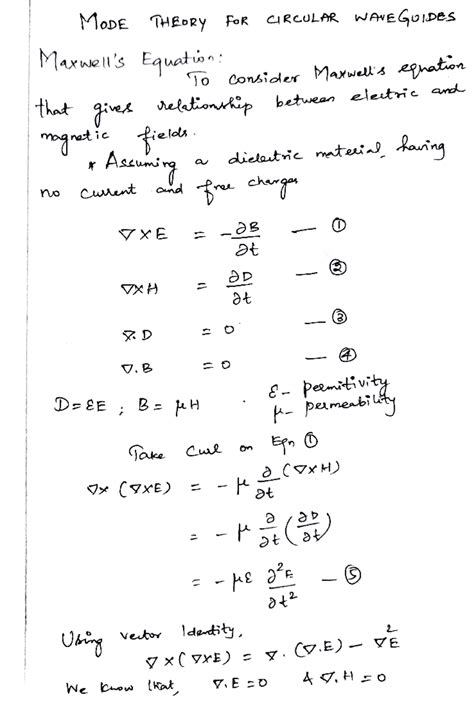 MODE THEORY FOR CIRCULAR WAVEGUIDES
Maxwell's Equation:
To consider Maxwell's equation
that gives relationship between electric and
magnetic fields.
* Assuming a dielectric material, having
no current and free charges
∇×E = -∂B/∂t — ①
∇×H = ∂D/∂t — ②
∇.D = 0 — ③
∇.B = 0 — ④
D=εE ; B = μH . ε- permitivity
μ- permeability
Take Curl on Eqn ①
∇× (∇×E) = -μ ∂/∂t (∇×H)
= -μ ∂/∂t (∂D/∂t)
= -με ∂²E/∂t² — ⑤
Using vector Identity,
∇×(∇×E) = ∇. (∇.E) - ∇²E
We know that, ∇.E=0 & ∇.H=0